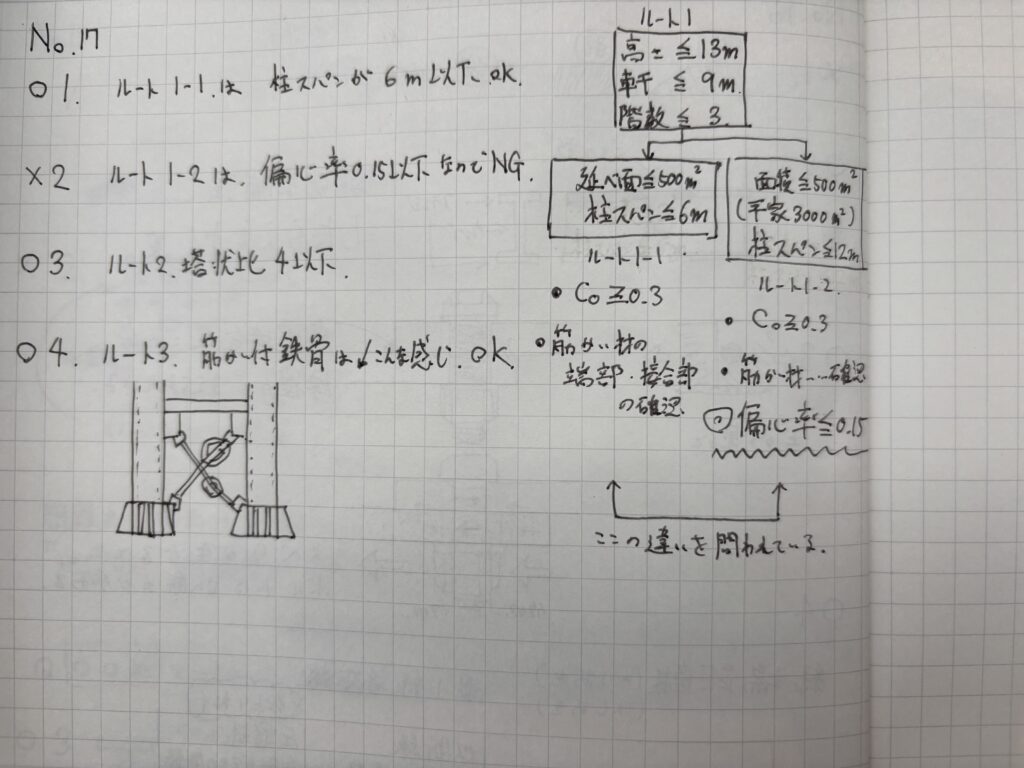 No.17
○1. ルート1-1.は 柱スパンが6m以下、OK.
×2 ルート1-2は、偏心率0.15以下なのでNG.
○3. ルート2.塔状比4以下.
○4. ルート3. 筋かい付鉄骨は↙こんな感じ. OK
ルート1
高さ≦13m
軒≦9m.
階数≦3.
延べ面≦500m²
柱スパン≦6m
ルート1-1.
• C₀≧0.3
• 筋かい材の
端部・接合部
の確認
面積≦500m²
(平家3000m²)
柱スパン≦12m
ルート1-2.
• C₀≧0.3
• 筋かい材……確認
偏心率≦0.15
ここの違いを問われている.